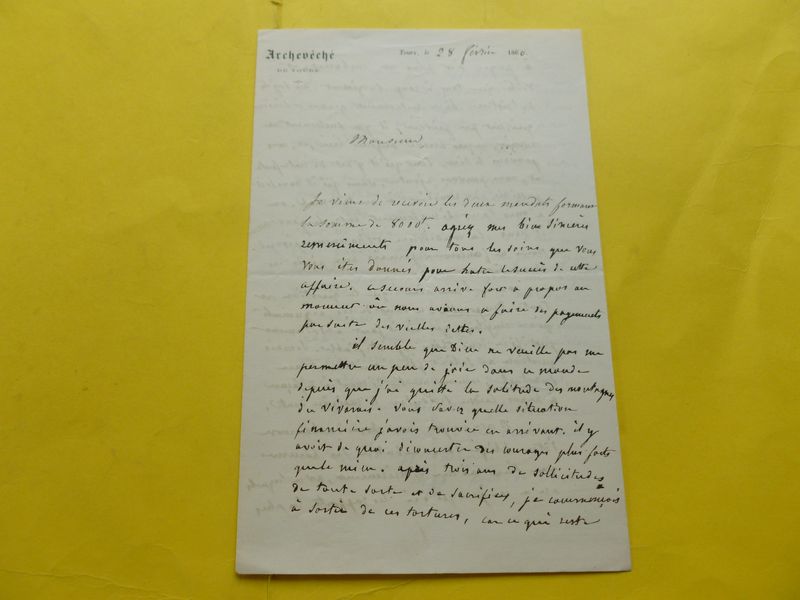 Archevêché
DE TOURS
Tours, le 28 février 1860.
Monsieur
Je viens de recevoir les deux mandats formant
la somme de 8000f. agréez mes bien sincères
remerciements pour tous les soins que vous
vous êtes donnés pour hater le succès de cette
affaire. ce secours arrive fort à propos au
moment où nous avions a faire des payements
par suite des vieilles dettes.
il semble que Dieu ne veuille pas me
permettre un peu de joie dans ce monde
depuis que j'ai quitté la solitude des montagnes
du vivarais. vous savez quelle situation
financière j'avois trouvée en arrivant. il y
avoit de quoi déconcerter des courages plus forts
que le mien. après trois ans de sollicitudes
de toute sorte et de sacrifices, je commençois
à sortir de ces tortures, car ce qui reste